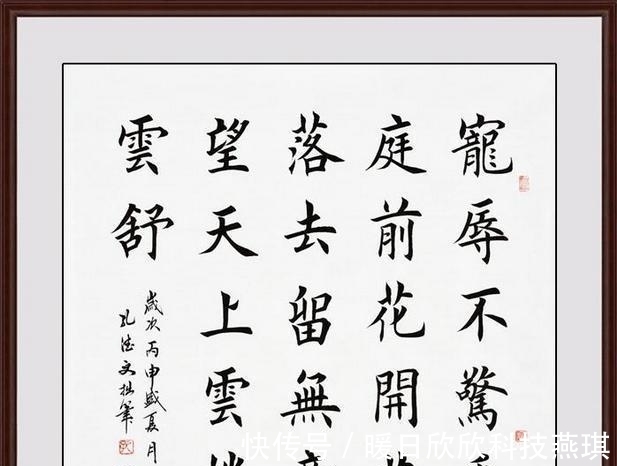 寵辱不驚
庭前花開
落去留無
望天上雲
雲舒
歲次丙申盛夏月
孔德文拙筆
快传号 / 暖日欣欣科技燕琪